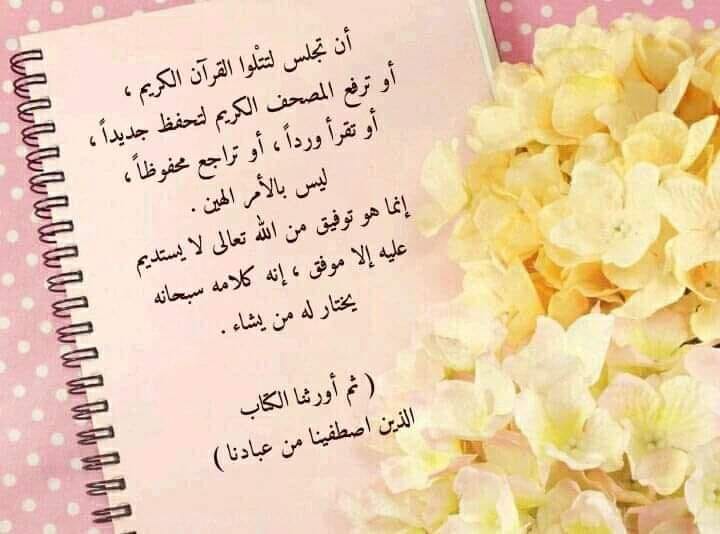 أن تجلس لتتْلوا القرآن الكريم ،
أو ترفع المصحف الكريم لتحفظ جديداً ،
أو تقرأ ورداً ، أو تراجع محفوظاً ،
ليس بالأمر الهين .
إنما هو توفيق من الله تعالى لا يستديم
عليه إلا موفق ، إنه كلامه سبحانه
يختار له من يشاء .
( ثم أورثنا الكتاب
الذين اصطفينا من عبادنا )